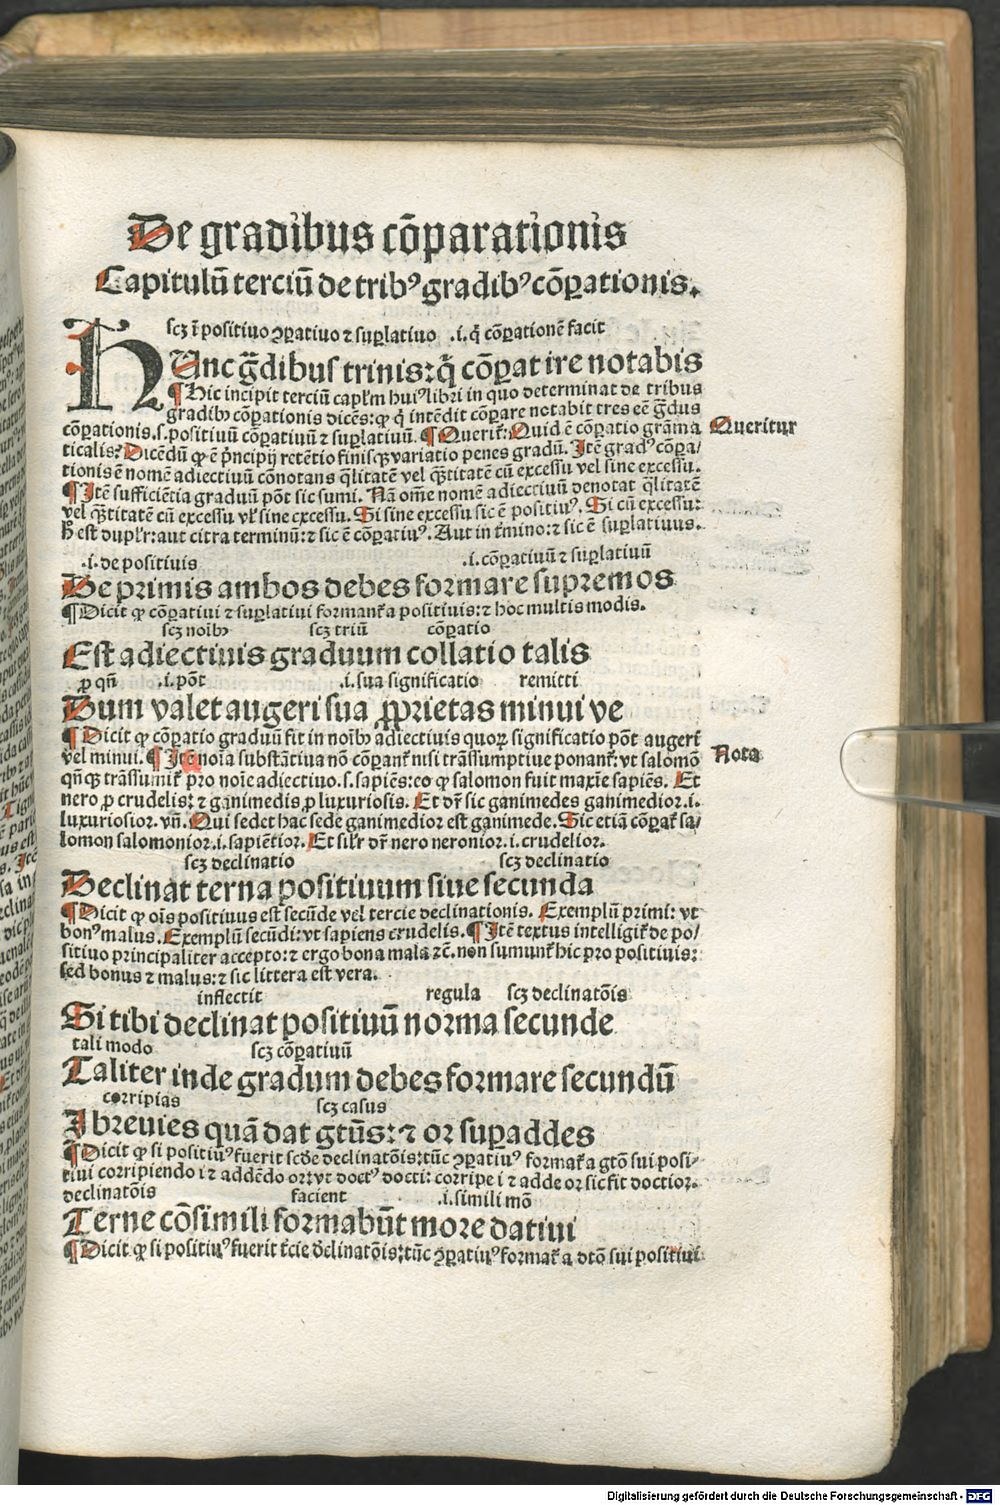 De gradibus cõparationis
Capitulũ terciũ de tribꝰ gradibꝰ cõꝑationis.
scʒ ĩ positiuo ꝯꝑatiuo ⁊ suꝑlatiuo .i. q̃ cõꝑationẽ facit
HUnc g̃dibus trinis: q̃ cõꝑat ire notabis
¶ Hic incipit terciũ capľm huiꝰ libri in quo determinat de tribus
gradibꝫ cõꝑationis dicẽs: ꝙ q̃ intẽdit cõꝑare notabit tres eẽ g̃dus
cõꝑationis .s. positiuũ cõꝑatiuũ ⁊ suꝑlatiuũ. ¶ Querit̃: Quid ẽ cõꝑatio grãma
Queritur
ticalis? Dicẽdũ ꝙ ẽ p̃ncipij retẽtio finisqꝫ variatio penes gradũ. Itẽ gradꝰ cõꝑa/
tionis ẽ nomẽ adiectiuũ cõnotans q̃litatẽ vel q̃titatẽ cũ excessu vel sine excessu.
¶ Itẽ sufficiẽtia graduũ põt sic sumi. Nã om̃e nomẽ adiectiuũ denotat q̃litatẽ
vel q̃titatẽ cũ excessu vľ sine excessu. Si sine excessu sic ẽ positiuꝰ. Si cũ excessu:
h̃ est dupľr: aut citra terminũ: ⁊ sic ẽ cõꝑatiuꝰ. Aut in t̃mino: ⁊ sic ẽ suꝑlatiuus.
.i. de positiuis .i. cõꝑatiuũ ⁊ suꝑlatiuũ
De primis ambos debes formare supremos
¶ Dicit ꝙ cõꝑatiui ⁊ suꝑlatiui formant̃ a positiuis: ⁊ hoc multis modis.
scʒ noĩbꝫ scʒ triũ cõꝑatio
Est adiectiuis graduum collatio talis
ꝓ qñ .i. põt .i. sua significatio remitti
Dum valet augeri sua ꝓprietas minui ve
¶ Dicit ꝙ cõꝑatio graduũ fit in noĩbꝫ adiectiuis quoꝝ significatio põt augeri
vel minui. ¶ Itẽ noĩa substãtiua nõ cõꝑant̃ nisi trãssumptiue ponant̃: vt salomõ
Nota
qñqꝫ trãssumit̃ pro noĩe adiectiuo .s. sapiẽs: eo ꝙ salomon fuit maxĩe sapiẽs. Et
nero ꝓ crudelis: ⁊ ganimedis ꝓ luxuriosis. Et dr̃ sic ganimedes ganimedior .i.
luxuriosior. vñ. Qui sedet hac sede ganimedior est ganimede. Sic etiã cõꝑat̃ sa/
lomon salomonior .i. sapiẽtior. Et siľr dr̃ nero neronior .i. crudelior.
scʒ declinatio scʒ declinatio
Declinat terna positiuum siue secunda
¶ Dicit ꝙ oĩs positiuus est secũde vel tercie declinationis. Exemplũ primi: vt
bonꝰ malus. Exemplũ secũdi: vt sapiens crudelis. ¶ Itẽ textus intelligit̃ de po/
sitiuo principaliter accepto: ⁊ ergo bona mala ⁊c. non sumunt̃ hic pro positiuis:
sed bonus ⁊ malus: ⁊ sic littera est vera.
inflectit regula scʒ declinatõis
Si tibi declinat positiuũ norma secunde
tali modo scʒ cõꝑatiuũ
Taliter inde gradum debes formare secundũ
corripias scʒ casus
I breuies quã dat gtũs: ⁊ or suꝑaddes
¶ Dicit ꝙ si positiuꝰ fuerit scd̃e declinatõis: tũc ꝯꝑatiuꝰ format̃ a gtõ sui posi-
tiui corripiendo i ⁊ addẽdo or: vt doctꝰ docti: corripe i ⁊ adde or sic fit doctior.
declinatõis facient .i. simili mõ
Terne cõsimili formabũt more datiui
¶ Dicit ꝙ si positiuꝰ fuerit t̃cie d̃clinatõis: tũc ꝯꝑatiuꝰ format̃ a dtõ sui positiui
Digitalisierung gefördert durch die Deutsche Forschungsgemeinschaft - DFG